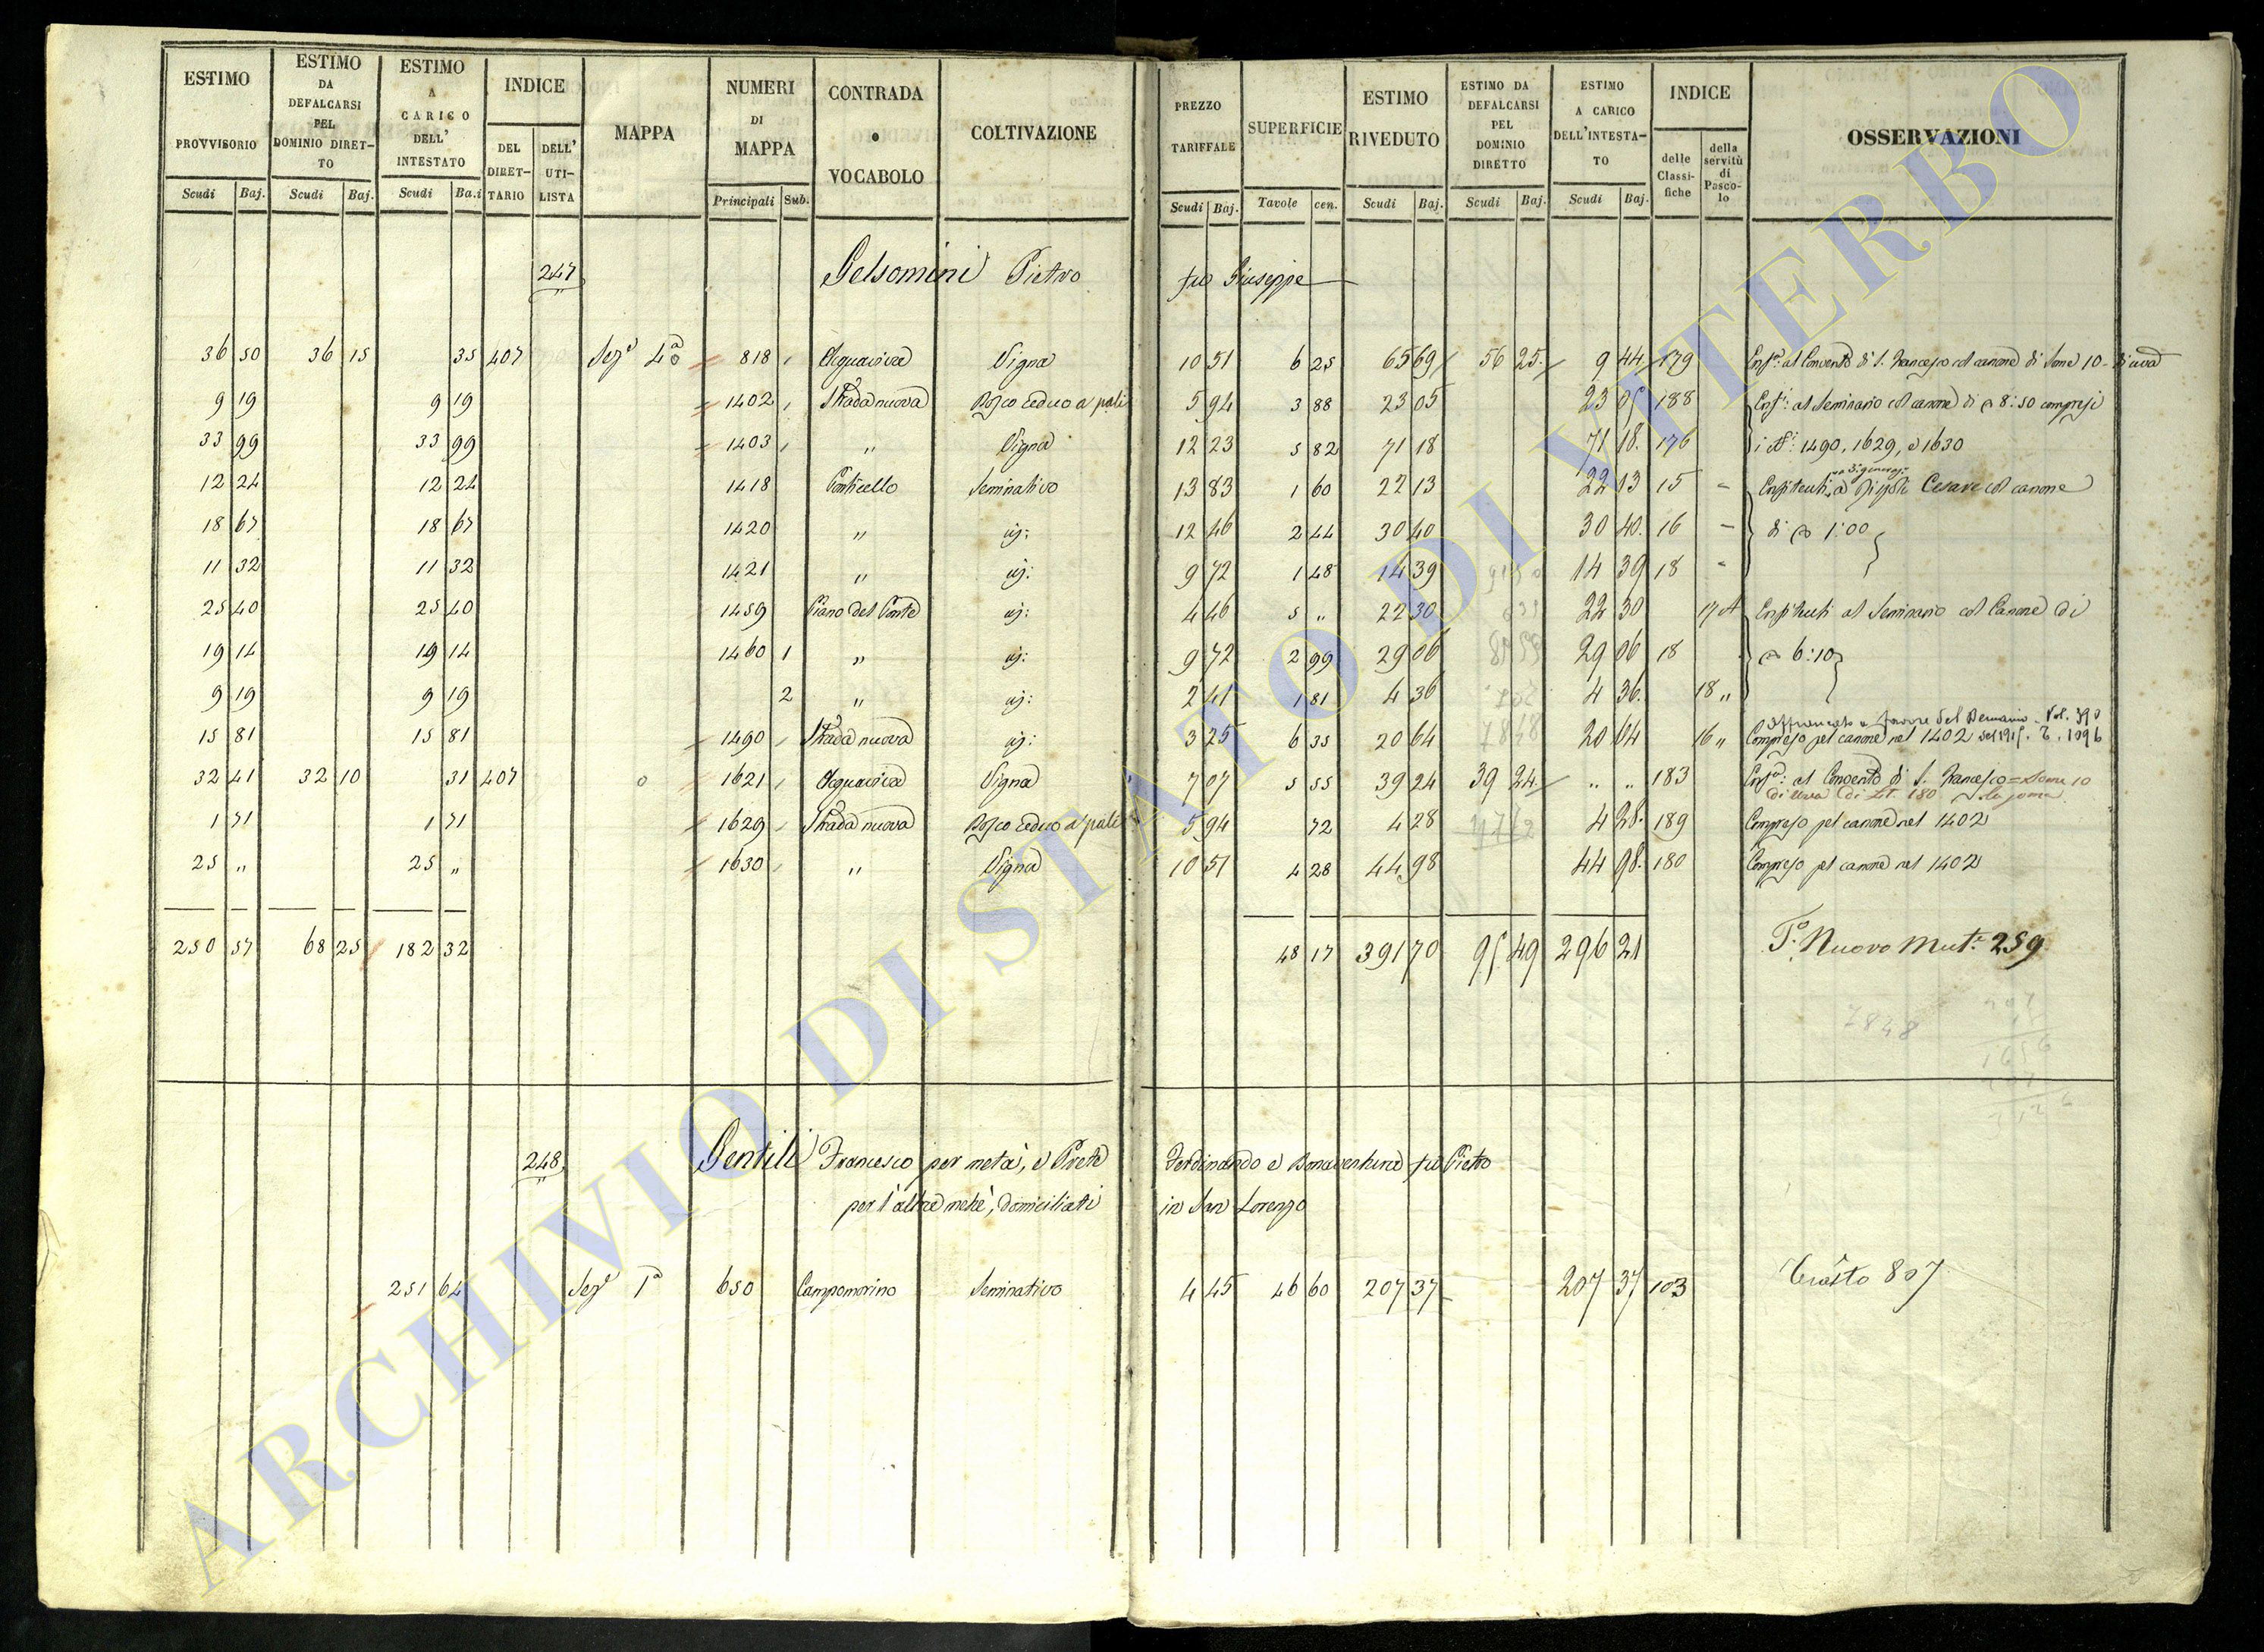 ESTIMO PROVVISORIO Scudi Baj. | ESTIMO DA DEFALCARSI PEL DOMINIO DIRETTO Scudi Baj. | ESTIMO A CARICO DELL' INTESTATO Scudi Ba.i | INDICE DEL DIRETTARIO DELL' UTILISTA | MAPPA | NUMERI DI MAPPA Principali Sub. | CONTRADA o VOCABOLO | COLTIVAZIONE | PREZZO TARIFFALE Scudi Baj. | SUPERFICIE Tavole cen. | ESTIMO RIVEDUTO Scudi Baj. | ESTIMO DA DEFALCARSI PEL DOMINIO DIRETTO Scudi Baj. | ESTIMO A CARICO DELL'INTESTATO Scudi Baj. | INDICE delle Classifiche della servitù di Pascolo | OSSERVAZIONI
247 Gelsomini Pietro fu Giuseppe
36 50 36 15 35 407 Sez.e 4a 818 Acquaviva Vigna 10 51 6 25 65 69 56 25 9 44 179 Enf.a al Convento di S. Francesco col canone di Some 10 di uva
9 19 9 19 1402 Strada nuova Bosco ceduo a pali 5 94 3 88 23 05 23 05 188 Enf.i al Seminario col canone di 8:50 compresi
33 99 33 99 1403 " Vigna 12 23 5 82 71 18 71 18 176 i 1490, 1629, e 1630
12 24 12 24 1418 Ponticello Seminativo 13 83 1 60 22 13 22 13 15 Enfiteuti a Cesare col canone
18 67 18 67 1420 " 12 46 2 44 30 40 30 40 16 di 1:00
11 32 11 32 1421 " 9 72 1 48 14 39 14 39 18
25 40 25 40 1459 Piano del Ponte 4 46 5 " 22 30 22 30 17 A Enfiteuti al Seminario col Canone di
19 14 19 14 1460 1 " 9 72 2 99 29 06 29 06 18 6:10
9 19 9 19 2 " 2 41 1 81 4 36 4 36 18 "
15 81 15 81 1490 Strada nuova 3 25 6 35 20 64 20 64 16 " Compreso pel canone nel 1402
32 41 32 10 31 407 1621 Acquaviva Vigna 7 07 5 55 39 24 39 24 " " 183 Enf.a al Convento di S. Francesco = Some 10
di uva di Lt. 180 la soma
1 71 1 71 1629 Strada nuova Bosco ceduo a pali 5 94 72 4 28 4 28 189 Compreso pel canone nel 1402
25 " 25 " 1630 " Vigna 10 51 4 28 44 98 44 98 180 Compreso pel canone nel 1402
250 57 68 25 182 32 48 17 391 70 95 49 296 21 T.o Nuovo Mut.e 259
7848
248 Gentili Francesco per metà, e Prete Ferdinando e Bonaventura fu Pietro
per l'altra metà, domiciliati in San Lorenzo
251 64 Sez.e 1a 650 Campomorino Seminativo 4 45 46 60 207 37 207 37 103 807
ARCHIVIO DI STATO DI VITERBO